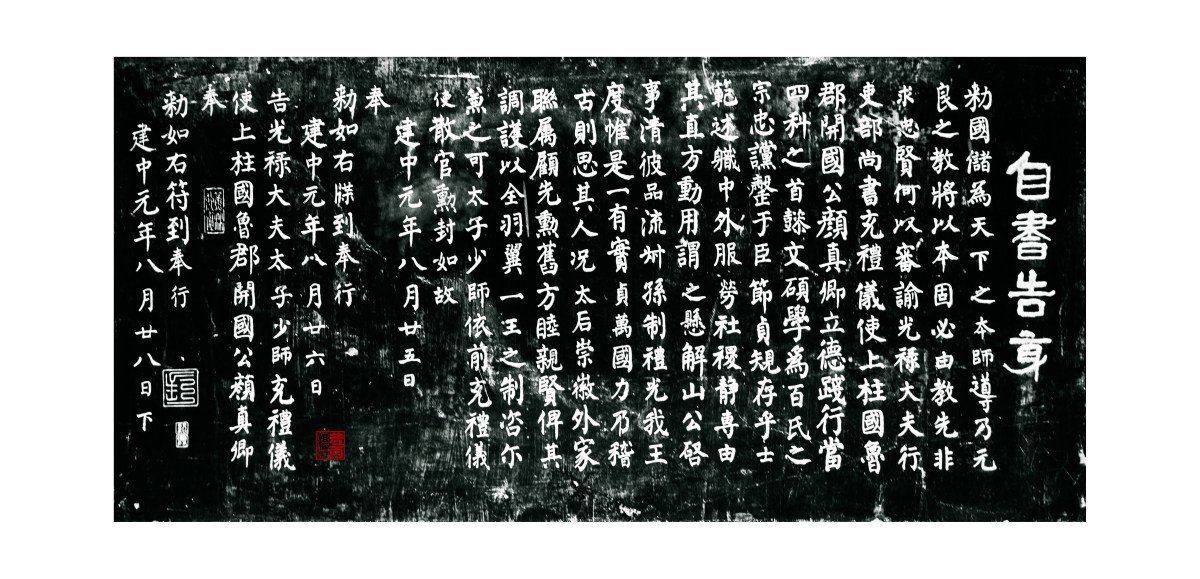 自書告身
勑國儲為天下之本師導乃元
良之教將以本固必由教先非
求忠賢何以審諭光禄大夫行
吏部尚書充禮儀使上柱國魯
郡開國公顏真卿立德踐行當
四科之首懿文碩學為百氏之
宗忠讜罄于臣節貞規存乎士
範述職中外服勞社稷靜專由
其直方動用謂之懸解山公啓
事清彼品流叔孫制禮光我王
度惟是一有實貞萬國力乃稽
古則思其人况太后崇徽外家
聯属顧先勳舊方睦親賢俾其
調護以全羽翼一王之制咨尔
兼之可太子少師依前充禮儀
使散官勳封如故
建中元年八月廿五日
奉
勑如右牒到奉行
建中元年八月廿六日
告光禄大夫太子少師充禮儀
使上柱國魯郡開國公顏真卿
奉
勑如右符到奉行
建中元年八月廿八日下